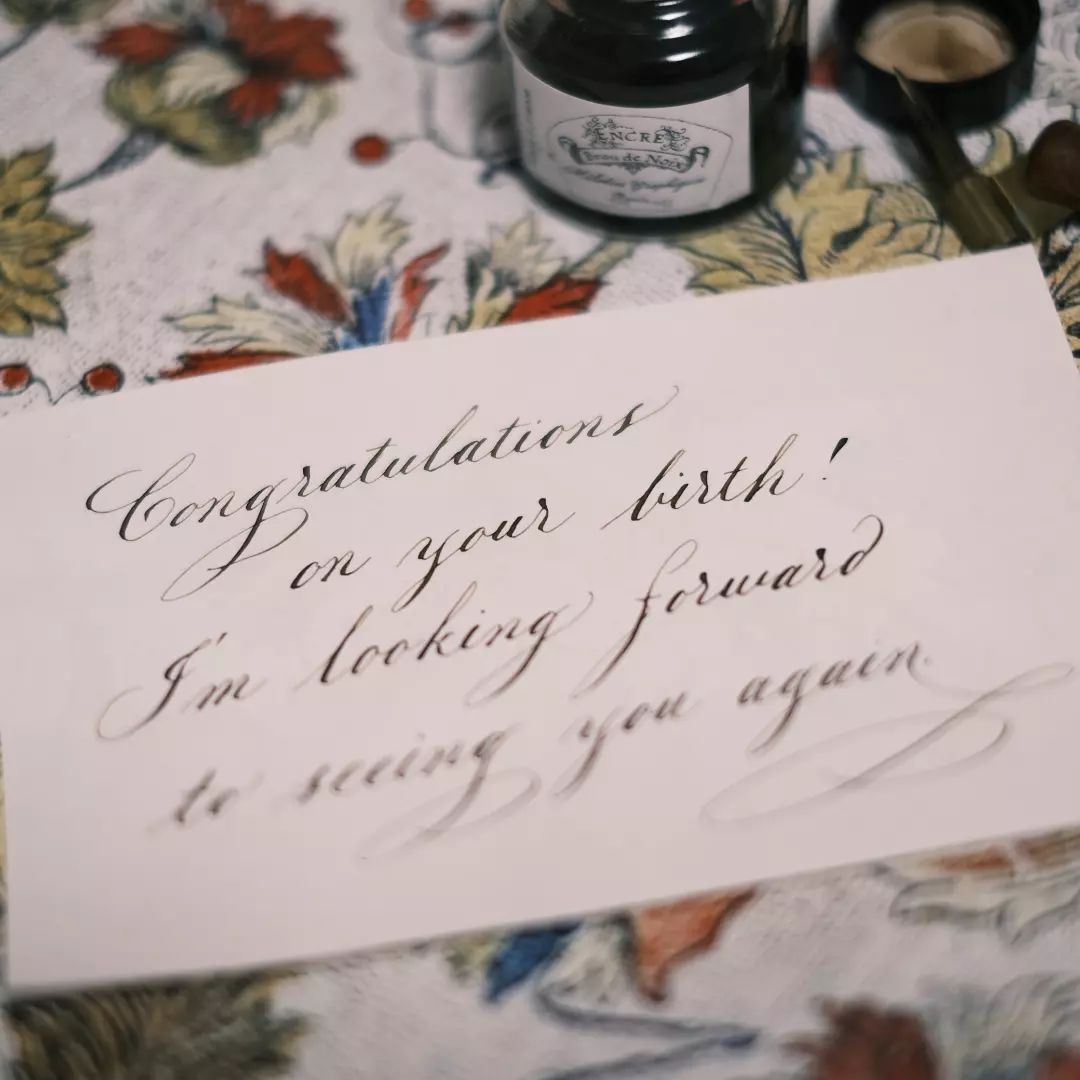 ENCRE
Brou de Noix
Congratulations
on your birth!
I'm looking forward
to seeing you again.